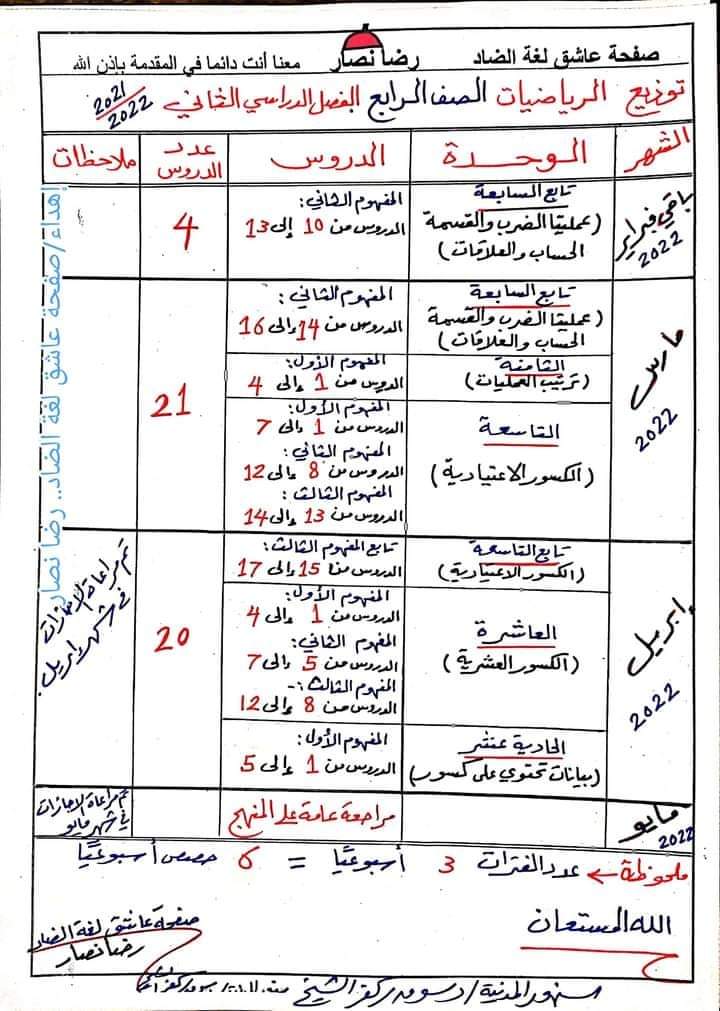 صفحة عاشق لغة الضاد رضا نصار معنا أنت دائما في المقدمة بإذن الله
توزيع الرياضيات الصف الرابع الفصل الدراسي الثاني 2021/2022
الشهر الوحدة الدروس عدد الدروس ملاحظات
باقي فبراير 2022
تابع السابعة
(عمليتا الضرب والقسمة
الحساب والعلاقات)
المفهوم الثاني:
الدروس من 10 إلى 13
4
مارس 2022
تابع السابعة
(عمليتا الضرب والقسمة
الحساب والعلاقات)
المفهوم الثاني:
الدروس من 14 إلى 16
الثامنة
(ترتيب العمليات)
المفهوم الأول:
الدروس من 1 إلى 4
التاسعة
(الكسور الاعتيادية)
المفهوم الأول:
الدروس من 1 إلى 7
المفهوم الثاني:
الدروس من 8 إلى 12
المفهوم الثالث:
الدروس من 13 إلى 14
21
إبريل 2022
تابع التاسعة
(الكسور الاعتيادية)
تابع المفهوم الثالث:
الدروس من 15 إلى 17
العاشرة
(الكسور العشرية)
المفهوم الأول:
الدروس من 1 إلى 4
المفهوم الثاني:
الدروس من 5 إلى 7
المفهوم الثالث:-
الدروس من 8 إلى 12
الحادية عشر
(بيانات تحتوي على كسور)
المفهوم الأول:
الدروس من 1 إلى 5
20
تم مراعاة الإجازات
في شهر إبريل.
مايو 2022
مراجعة عامة على المنهج
تم مراعاة الإجازات
في شهر مايو
إهداء/صفحة عاشق لغة الضاد.. رضا نصار
ملحوظة ← عدد الفترات 3 أسبوعيًا = 6 حصص أسبوعيًا
الله المستعان
صفحة عاشق لغة الضاد
رضا نصار
سنهور المدينة/دسوق/كفر الشيخ